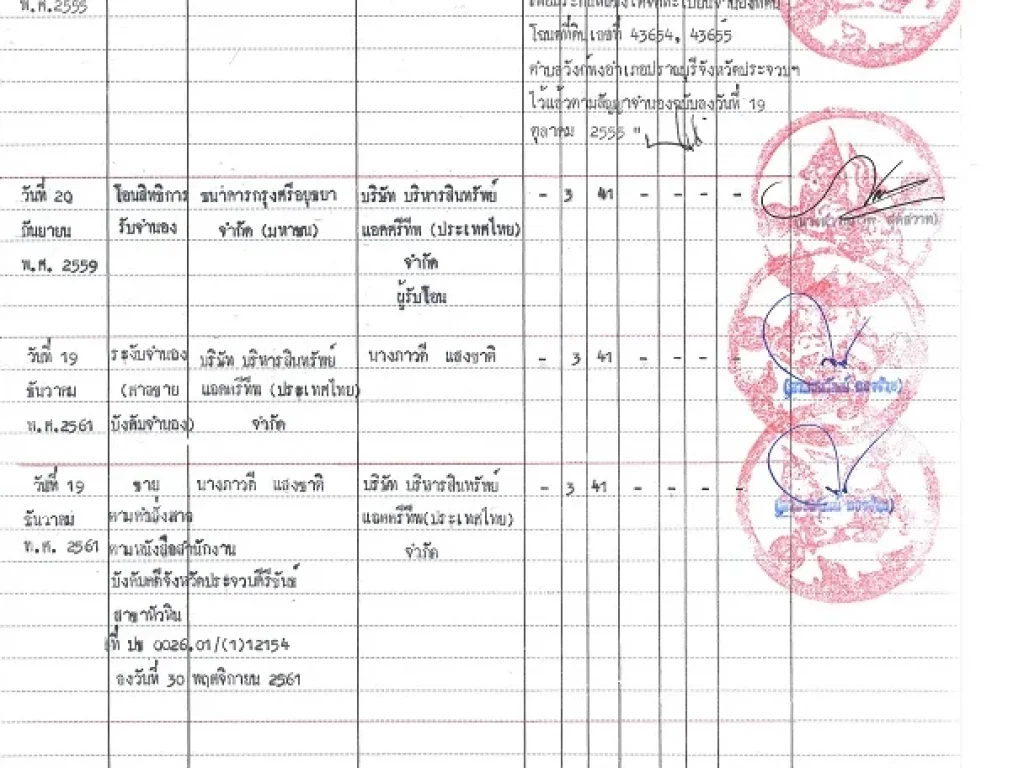 พ.ศ.2555
โฉนดที่ดินเลขที่ 43654, 43655
ตำบลวังก์พงอำเภอปราณบุรีจังหวัดประจวบฯ
ไว้แล้วตามสัญญาจำนองฉบับลงวันที่ 19
ตุลาคม 2555 "
วันที่ 20 โอนสิทธิการ ธนาคารกรุงศรีอยุธยา บริษัท บริหารสินทรัพย์ - 3 41 - - - -
กันยายน รับจำนอง จำกัด (มหาชน) แอคศรีทีพ (ประเทศไทย)
พ.ศ. 2559 จำกัด
ผู้รับโอน
วันที่ 19 ระงับจำนอง บริษัท บริหารสินทรัพย์ นางภาวดี แสงชาติ - 3 41 - - - -
ธันวาคม (ศาลขาย แอคศรีทีพ (ประเทศไทย)
พ.ศ.2561 บังคับจำนอง) จำกัด
วันที่ 19 ขาย นางภาวดี แสงชาติ บริษัท บริหารสินทรัพย์ - 3 41 - - - -
ธันวาคม ตามคำสั่งศาล แอคศรีทีพ(ประเทศไทย)
พ.ศ. 2561 ตามหนังสือสำนักงาน จำกัด
บังคับคดีจังหวัดประจวบคีรีขันธ์
สาขาหัวหิน
ที่ ปข 0026.01/(1)12154
ลงวันที่ 30 พฤศจิกายน 2561